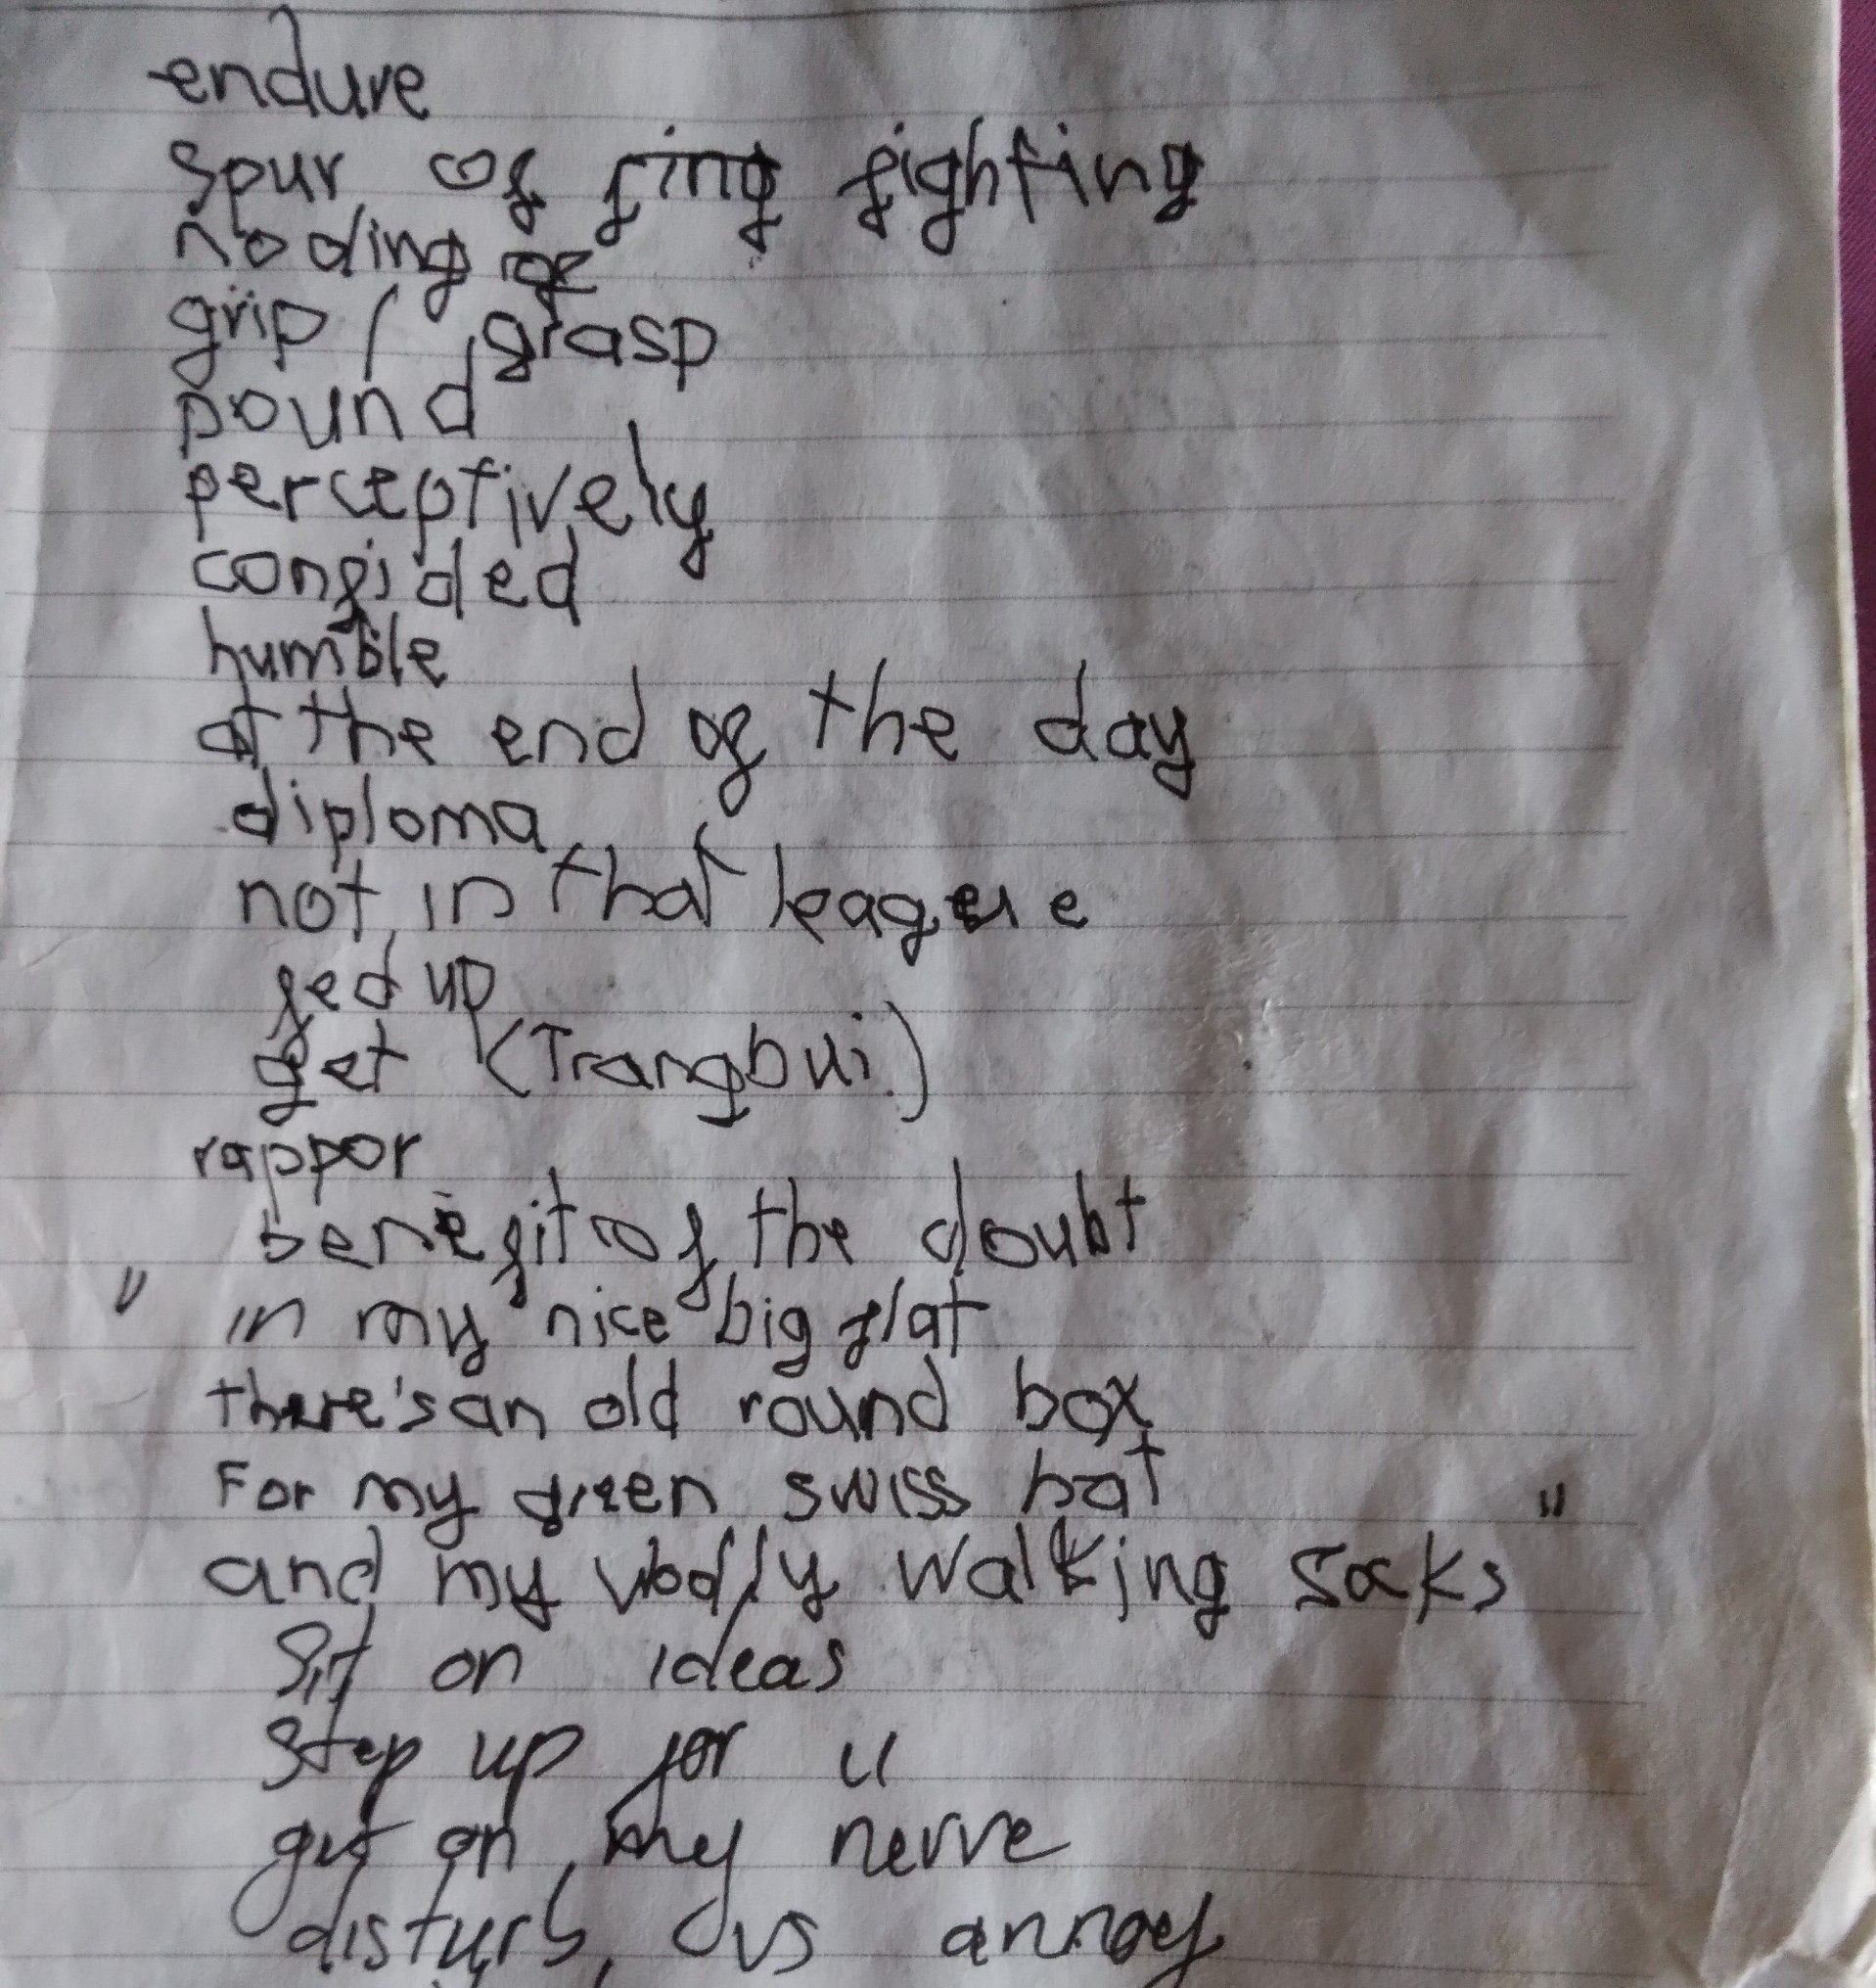 endure
spur of fing fighting
noding of
grip / grasp
pound
perceptively
confided
humble
at the end of the day
diploma
not in that leagure
fed up
get (Trangbui)
rappor
benefit of the doubt
" in my nice big flat
there's an old round box
For my green swiss hat
and my woolly walking socks "
Sit on ideas
Step up for u
get on my nerve
disturb, vs annoy